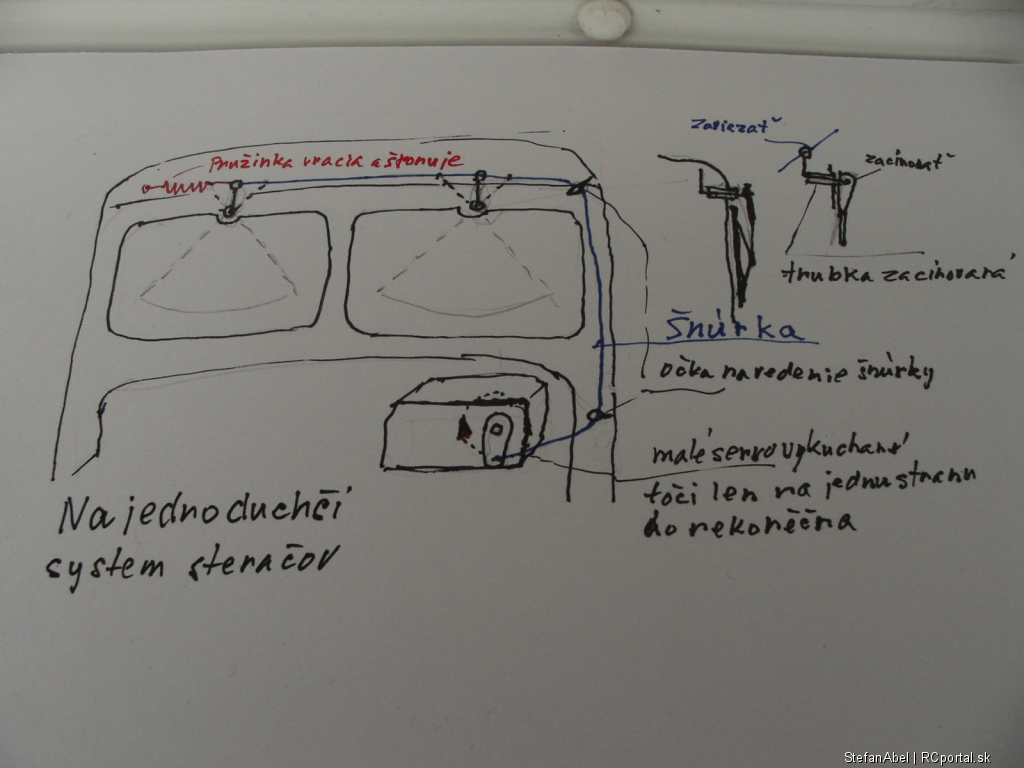 Pružinka vracia a štonuje
zaviazať
zacínovať
trubka zacínovaná
Šnúrka
očka na vedenie šnúrky
malé servo vykuchané
točí len na jednu stranu
do nekoněčna
Najjednoduchčí
system steračov
StefanAbel | RCportal.sk